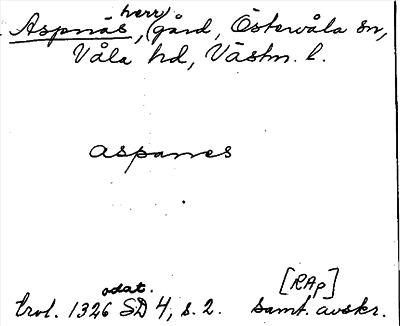 Aspnäs, (herr)gård, Östervåla sn,
Våla hd, Västm. l.
aspanes
trol. 1326 odat. SD 4, s. 2. [RAp] samt. avskr.